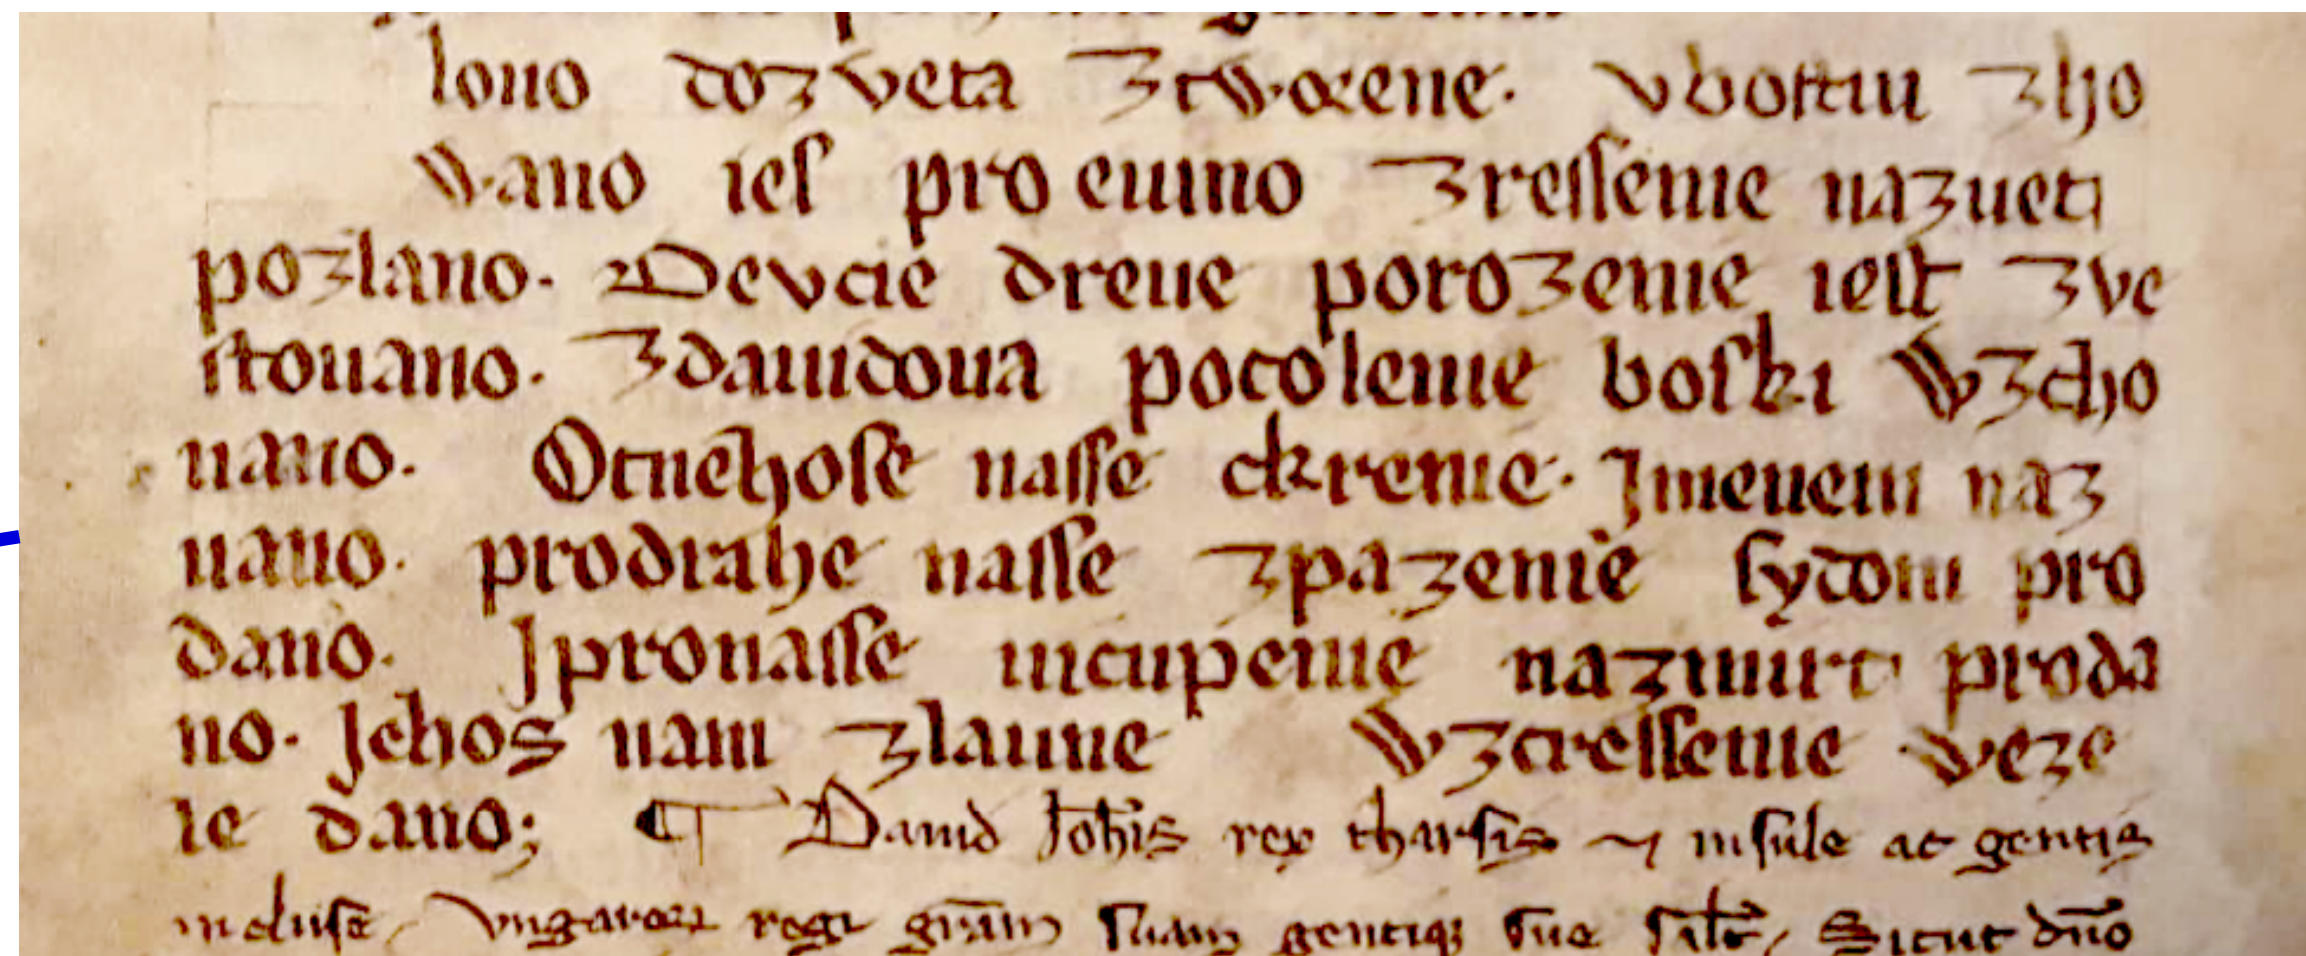 louo dozveta ztworene. vboſtui zho
wano ieſ pro euino zreſſenie nazueti
pozlano. Devcie dreue porozenie ieſt zve
ſtouano. zdauidoua pocolenie boſki wzcho
uano. Otnehoſe naſſe ckrenie. Jmenem naz
uano. prodrahe naſſe zpazenie ſydom pro
dano. Jpronaſſe uicupenie nazmirt proda
no. Jchos nam zlaune wzcreſſenie veze
le dano; ¶ Dauid Joh̅is rex tharſis ⁊ inſule ac gentis
incluſe, vngaroꝝ regi gr̅am ſuam gentiqꝫ ſue ſalt̅, Sicut dn̅o